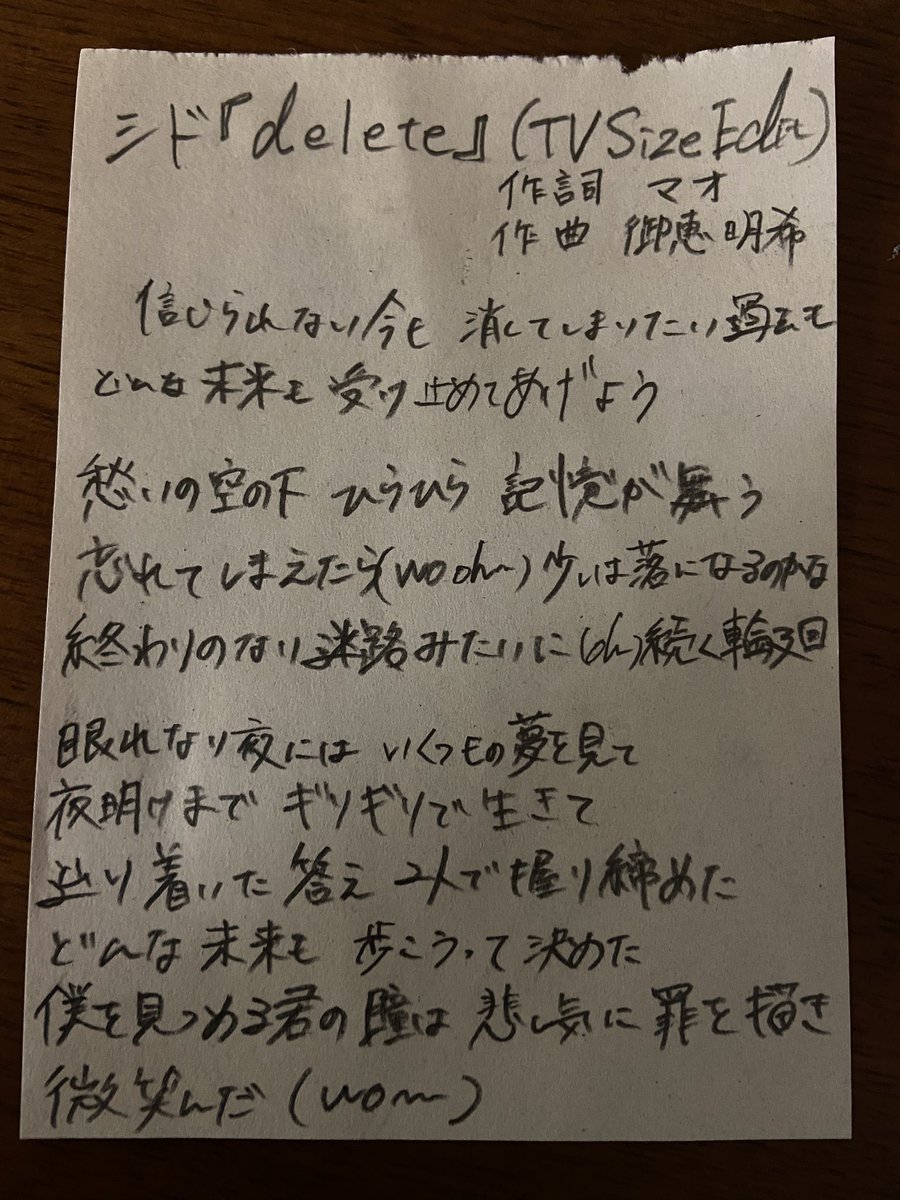 シド『delete』(TV Size Edit)
作詞 マオ
作曲 御恵明希
信じられない今も 消してしまいたい過去も
どんな未来も 受け止めてあげよう
愁いの空の下 ひらひら 記憶が舞う
忘れてしまえたら(wo oh〜) 少しは落になるのかな
終わりのない迷路みたいに(oh)続く輪廻
眠れない夜には いくつもの夢を見て
夜明けまで ギリギリで生きて
辿り着いた答え 2人で握り締めた
どんな未来も 歩こうって決めた
僕を見つめる君の瞳は 悲し気に罪を描き
微笑んだ (wo〜)